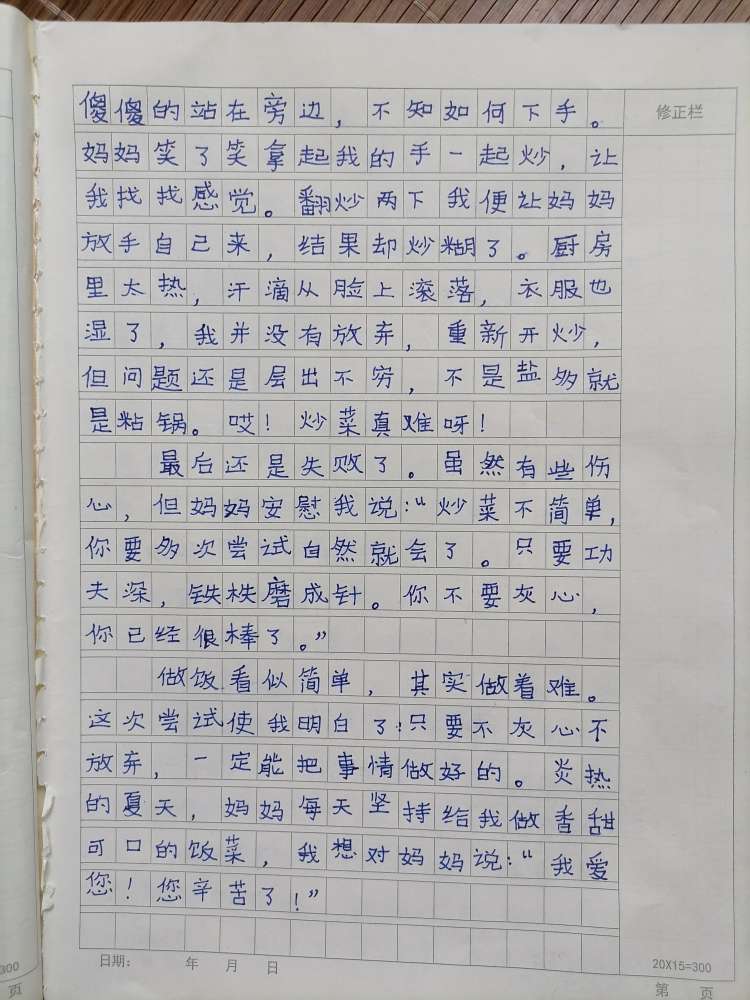 傻傻的站在旁边，不知如何下手。
修正栏
妈妈笑了笑拿起我的手一起炒，让
我找找感觉。翻炒两下我便让妈妈
放手自己来，结果却炒糊了。厨房
里太热，汗滴从脸上滚落，衣服也
湿了，我并没有放弃，重新开炒，
但问题还是层出不穷，不是盐多就
是粘锅。哎！炒菜真难呀！
最后还是失败了。虽然有些伤
心，但妈妈安慰我说：“炒菜不简单，
你要多次尝试自然就会了。只要功
夫深，铁杵磨成针。你不要灰心，
你已经很棒了。”
做饭看似简单，其实做着难。
这次尝试使我明白了：只要不灰心不
放弃，一定能把事情做好的。炎热
的夏天，妈妈每天坚持给我做香甜
可口的饭菜，我想对妈妈说：“我爱
您！您辛苦了！”
日期： 年 月 日
20X15=300
第 页
300
页